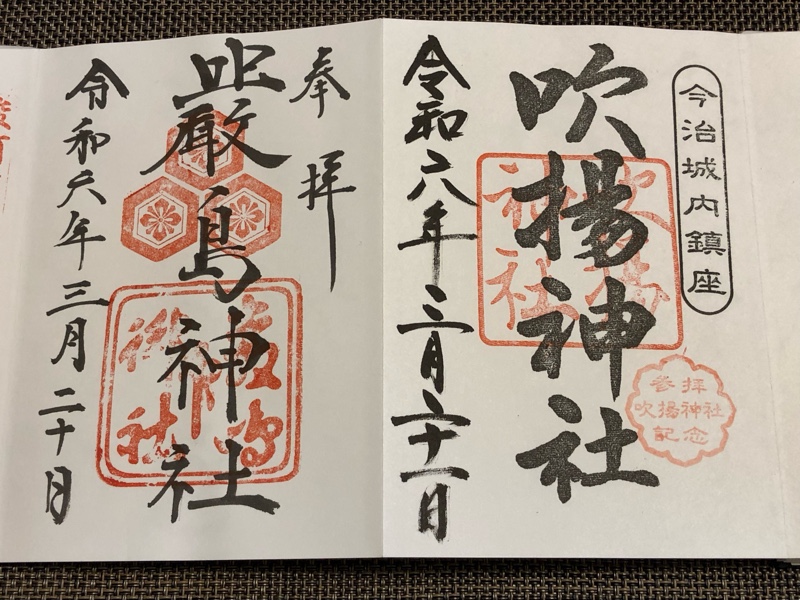 今治城内鎮座
吹揚神社
吹揚
神社
参拝
吹揚神社
記念
令和六年三月二十一日
奉拝
嚴島神社
嚴島
神社
令和六年三月二十日